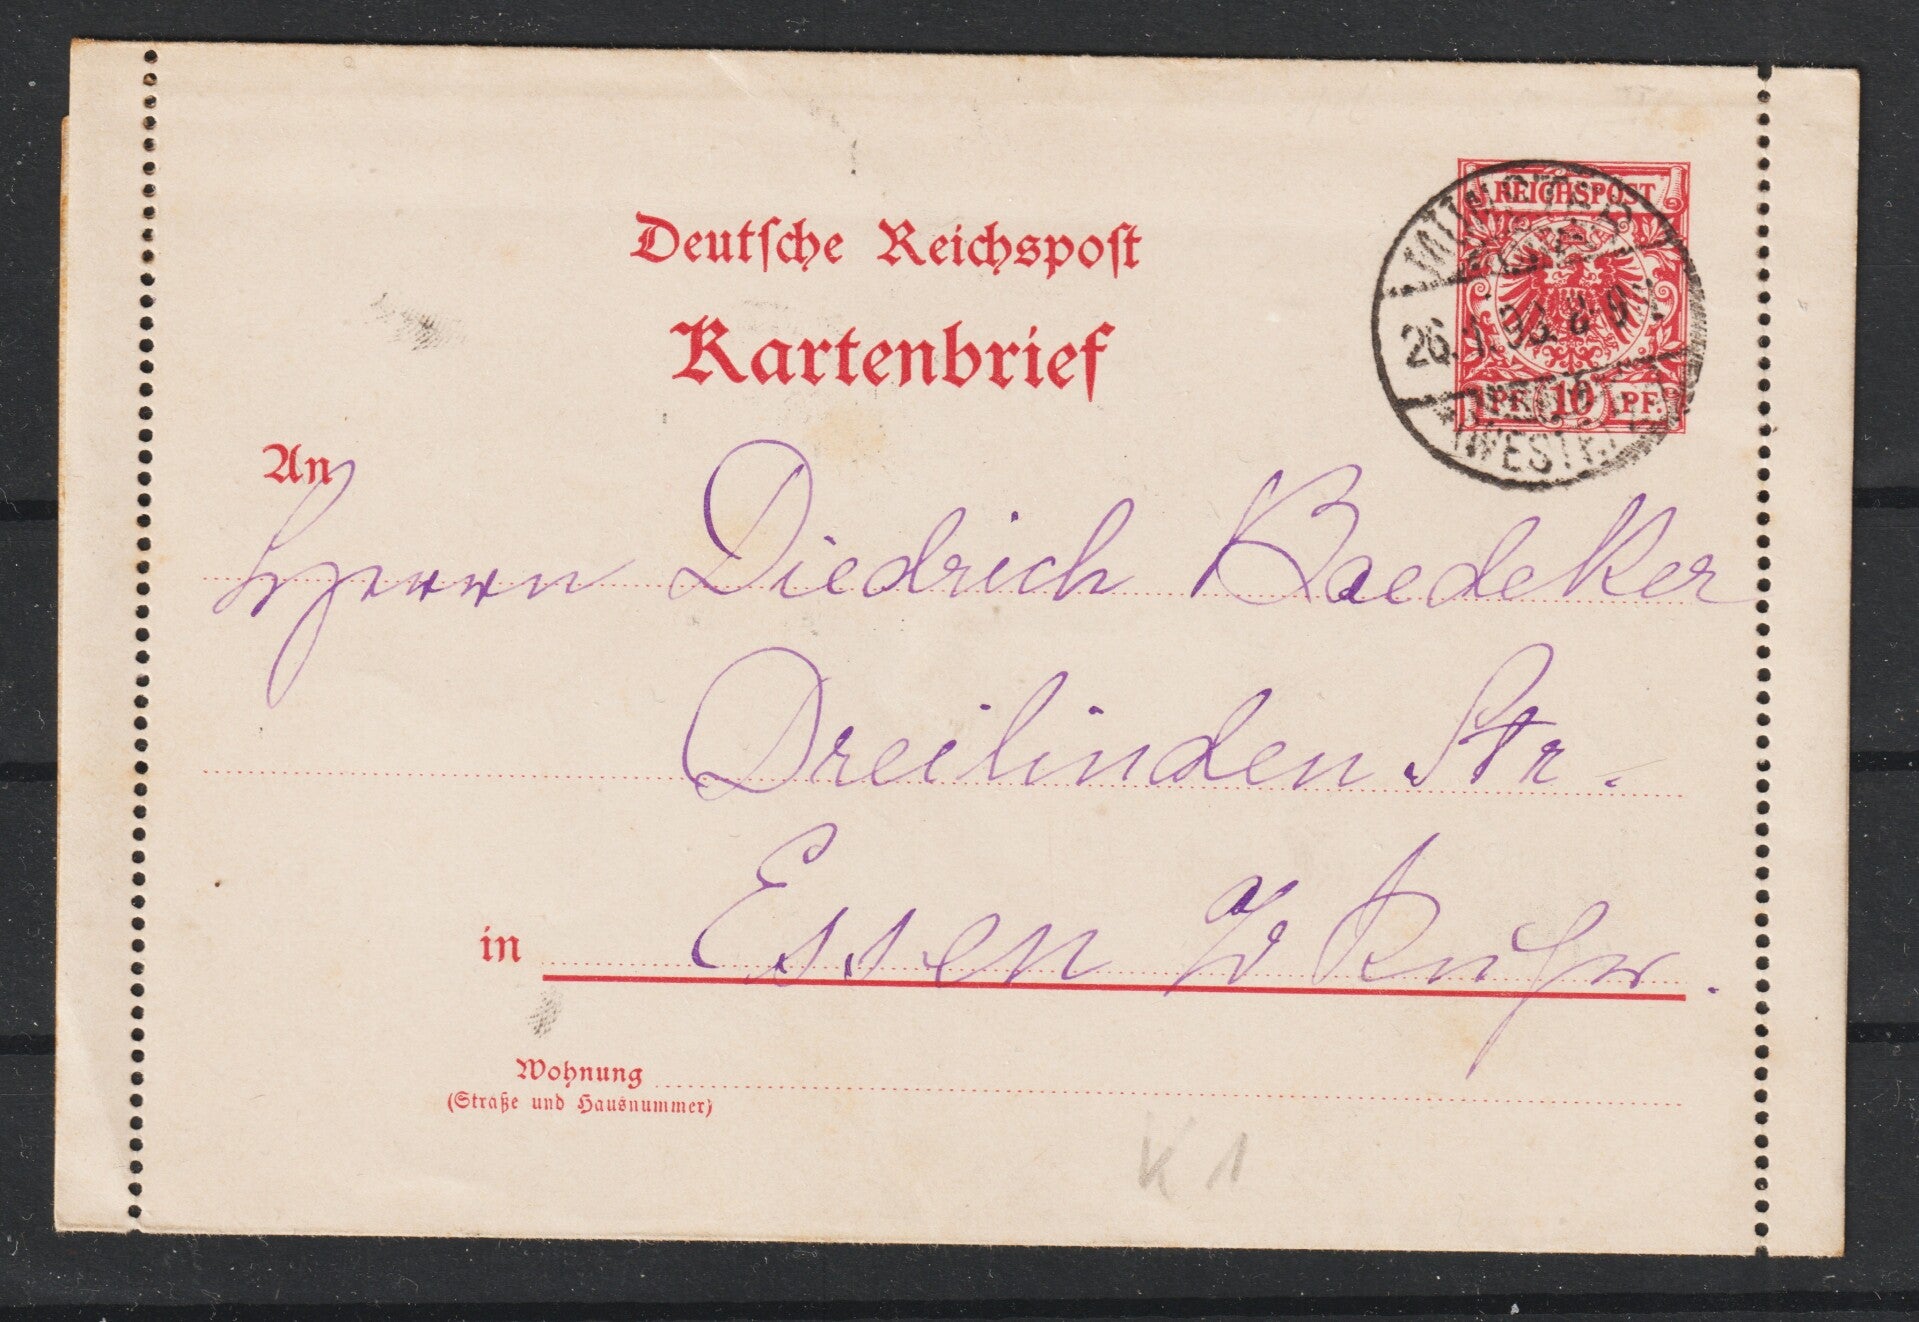 REICHSPOST
MÜNSTER
26. 1. 98. 8-9 V.
(WESTF.)
PF. 10 PF.
Deutsche Reichspost
Kartenbrief
An
Herrn Diedrich Baedeker
Dreilinden Str.
in Essen a/d Ruhr.
Wohnung
(Straße und Hausnummer)
K 1